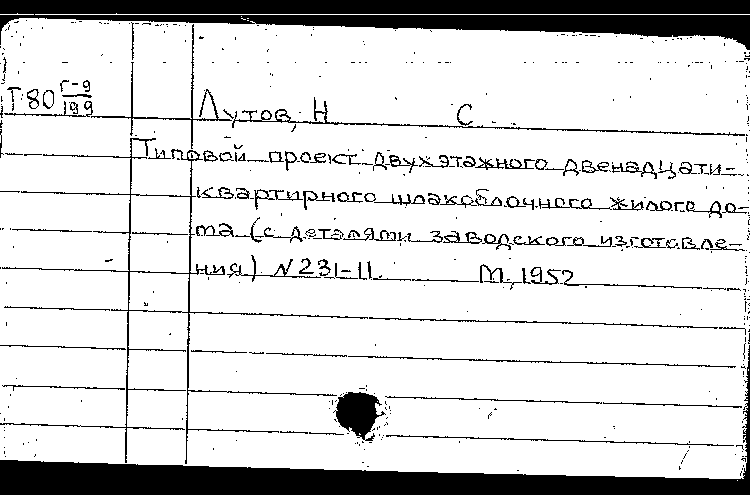 Т-80 Г-9/199
Лутов, Н С.
Типовой проект двухэтажного двенадцати-
квартирного шлакоблочного жилого до-
ма (с деталями заводского изготовле-
ния) N 231-11. М., 1952.